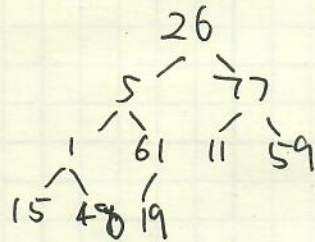 26
5 77
1 61 11 59
15 48 19